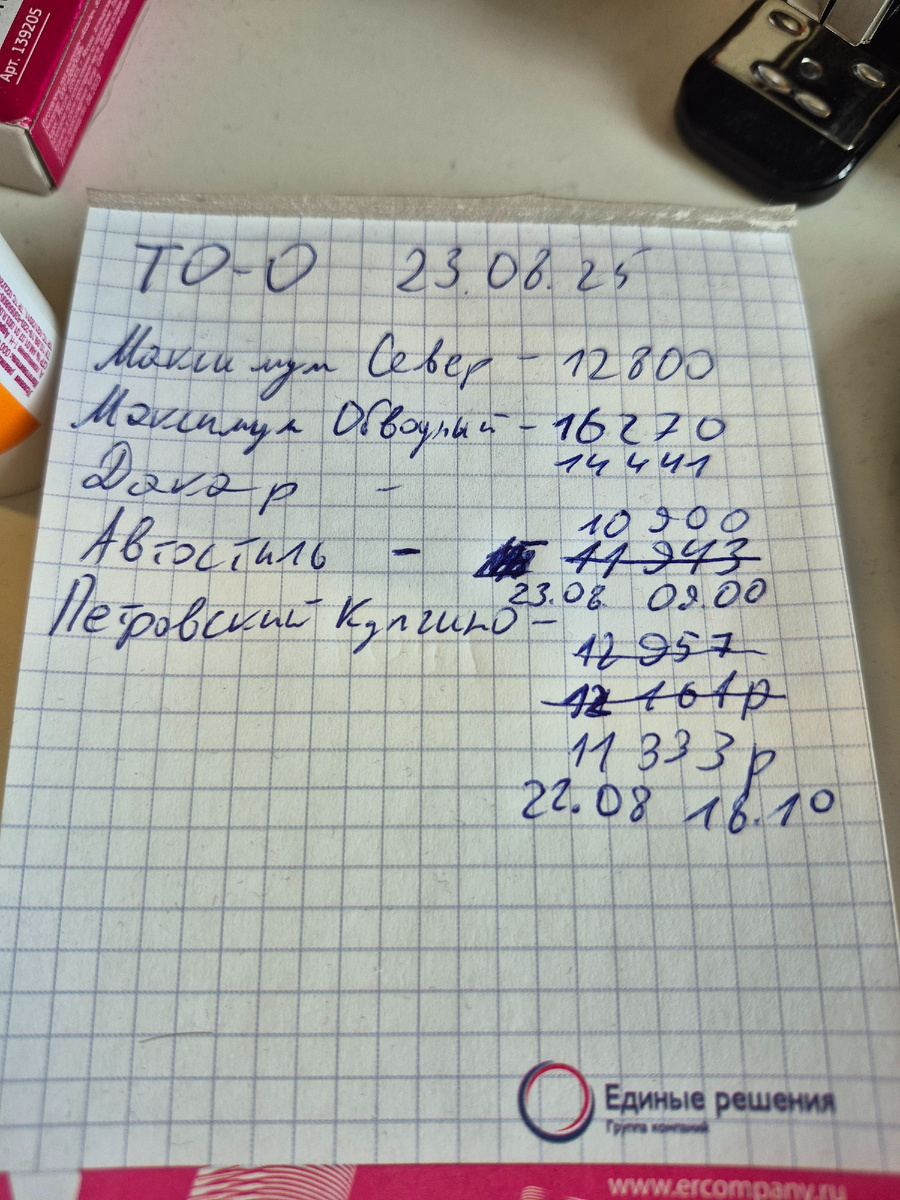 Арт. 139205
ТО-0 23.08.25
Максимум Север - 12800
Максимум Обводный - 16270
Дакар - 14441
10 900
Автостиль - 11 943
23.08. 09.00
Петровский Купчино -
12 957
12 161р
11 333р
22.08 18.10
Единые решения
Группа компаний
www.ercompany.ru